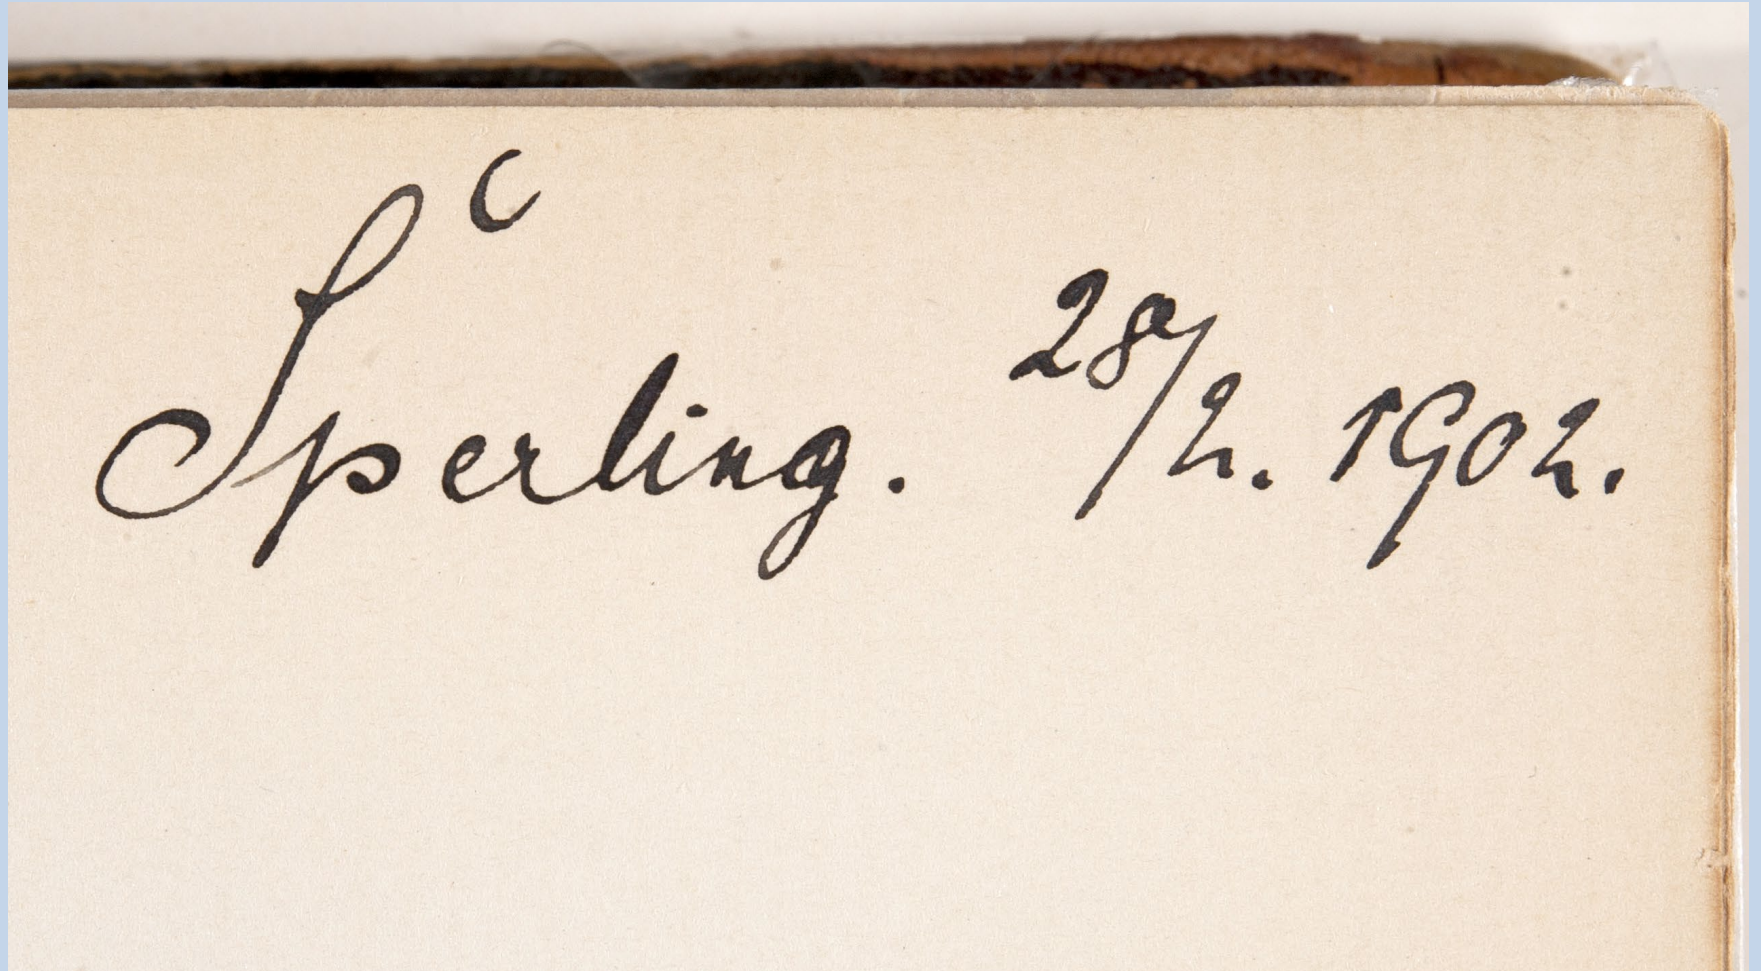 Šperling. 28/2. 1902.